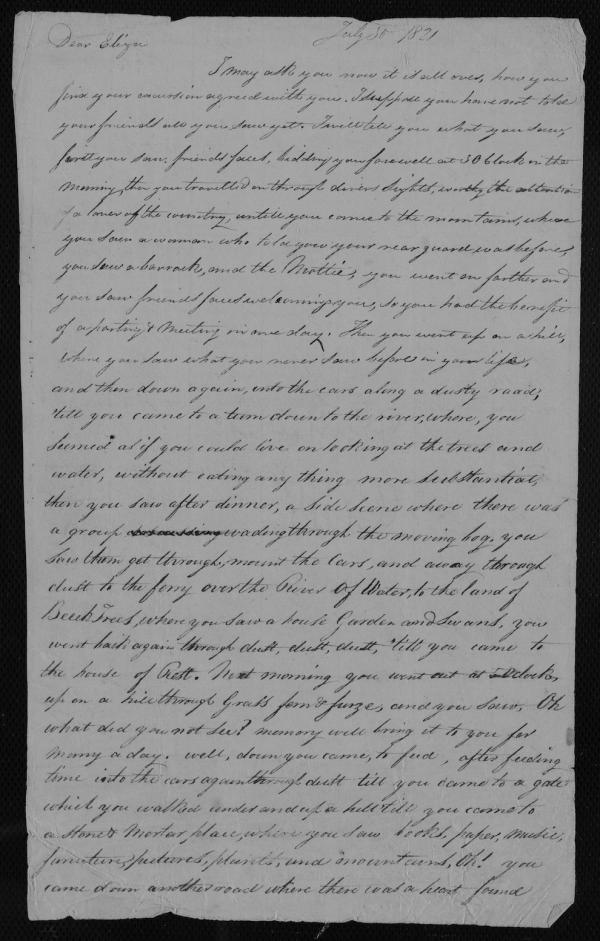 July 30 1821
Dear Eliza
I may ask you now it is all over, how you
find your excursion agreed with you. I suppose you have not told
your friends all you saw yet. I will tell you what you saw,
first you saw, friends faces, bidding you farewell at 3 Oclock in the
morning, then you travelled on through divers sights, worthy the attention
of a lover of the country, untill you came to the mountains, where
you saw a woman who told you your rear guard was before,
you saw a barrack, and the Mottie, you went on farther and
you saw friends faces welcoming you, so you had the benefit
of a parting & meeting in one day. Then you went up on a hill,
where you saw what you never saw before in your life,
and then down again, into the cars along a dusty road,
'till you came to a turn down to the river, where, you
seemed as if you could live on looking at the trees and
water, without eating any thing more substantial,
then you saw after dinner, a side scene where there was
a group wading through the moving bog, you
saw them get through, mount the Cars, and away through
dust to the ferry over the River Of Water, to the land of
Beech Trees, where you saw a house Garden and Swans, you
went back again through dust, dust, dust, 'till you came to
the house of Rest. Next morning you went out at 5 Oclock,
up on a hill through Grass fern & furze, and you saw, Oh
what did you not see? memory will bring it to you for
many a day. well, down you came, to feed, after feeding
time into the cars again through dust till you came to a gate
which you walked under and up a hill till you came to
a stone & Mortar place, where you saw books, paper, music,
furniture, pictures, plants, and mountains, Oh! you
came down another road where there was a heart found